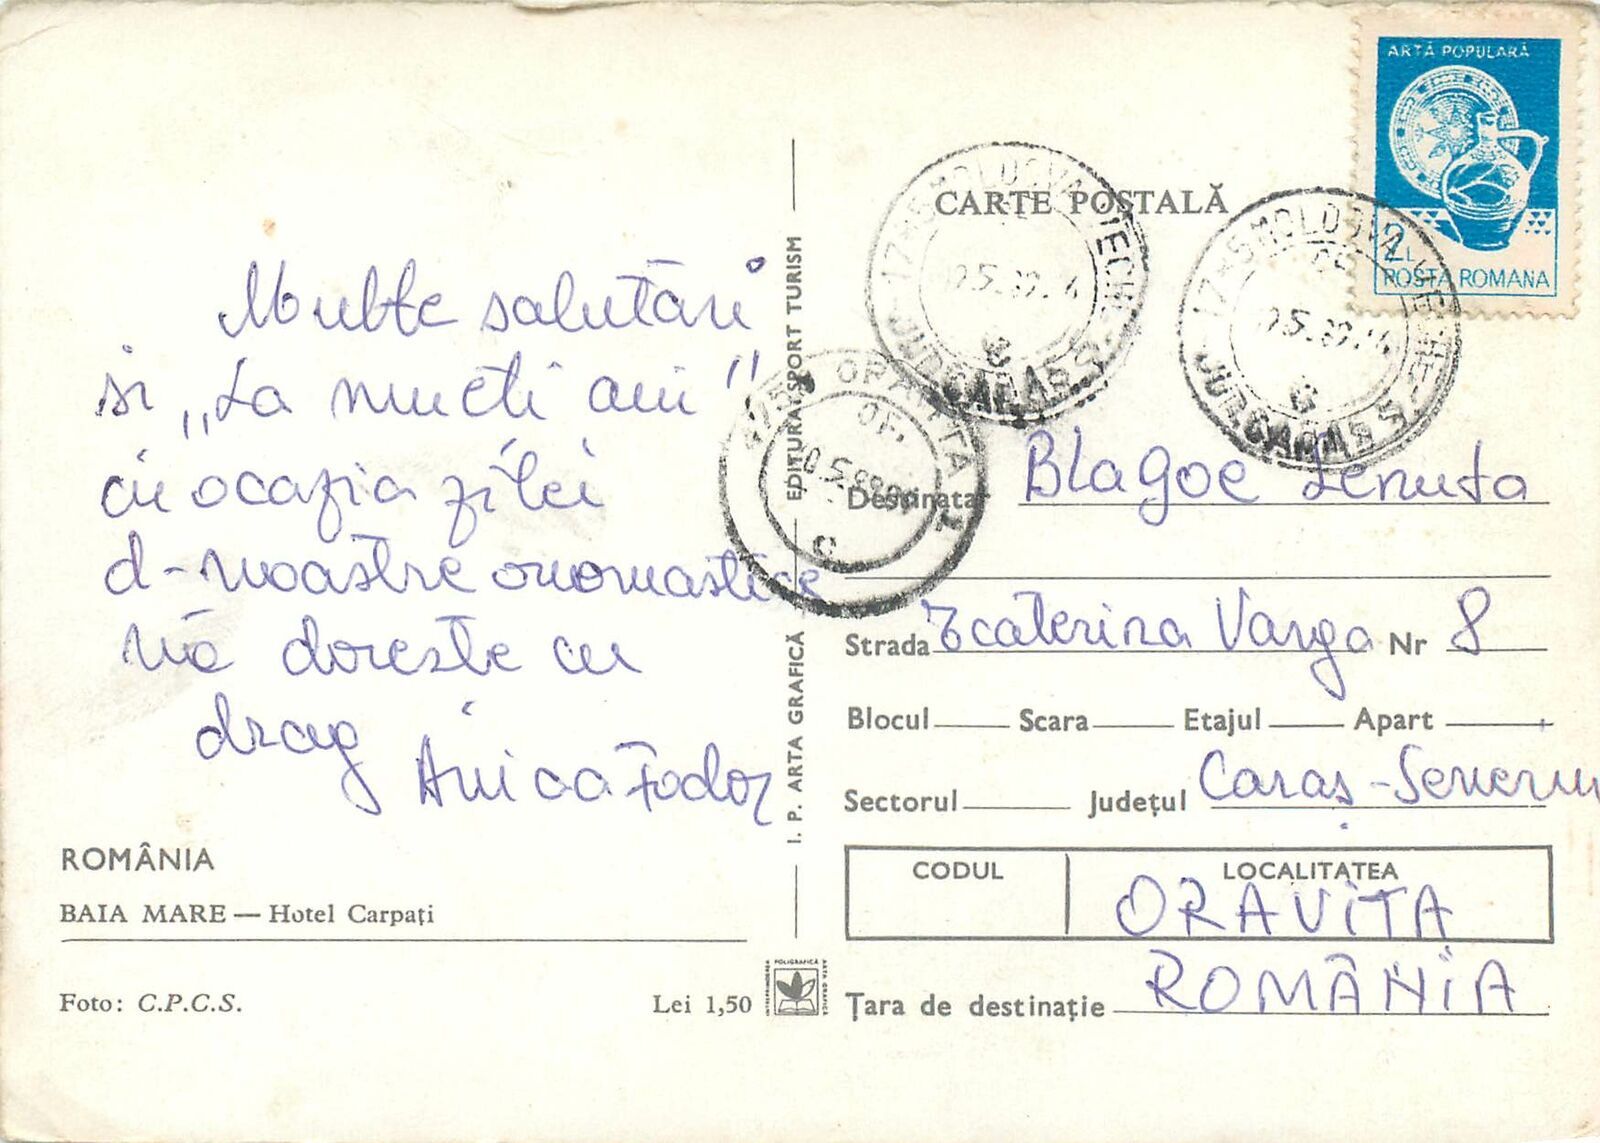 Multe salutări
si „La multi ani"
cu ocazia zilei
d-noastre onomastice
vă doreste cu
drag
Anicca Fodor
ROMÂNIA
BAIA MARE — Hotel Carpați
Foto: C.P.C.S.
Lei 1,50
I. P. ARTA GRAFICĂ
EDITURA SPORT TURISM
POLIGRAFICĂ
ARTA GRAFICĂ
ARTĂ POPULARĂ
2 L
POSTA ROMANA
CARTE POȘTALĂ
17*5 MOLDOVA VECHE
JUD. CARAS S
17*5 MOLDOVA VECHE
JUD. CARAS S
ORAVITA
Destinatar Blagoe Lenuta
Strada Ecaterina Varga Nr 8
Blocul Scara Etajul Apart
Sectorul Județul Caraș-Severin
CODUL LOCALITATEA
ORAVITA
Țara de destinație ROMÂNIA